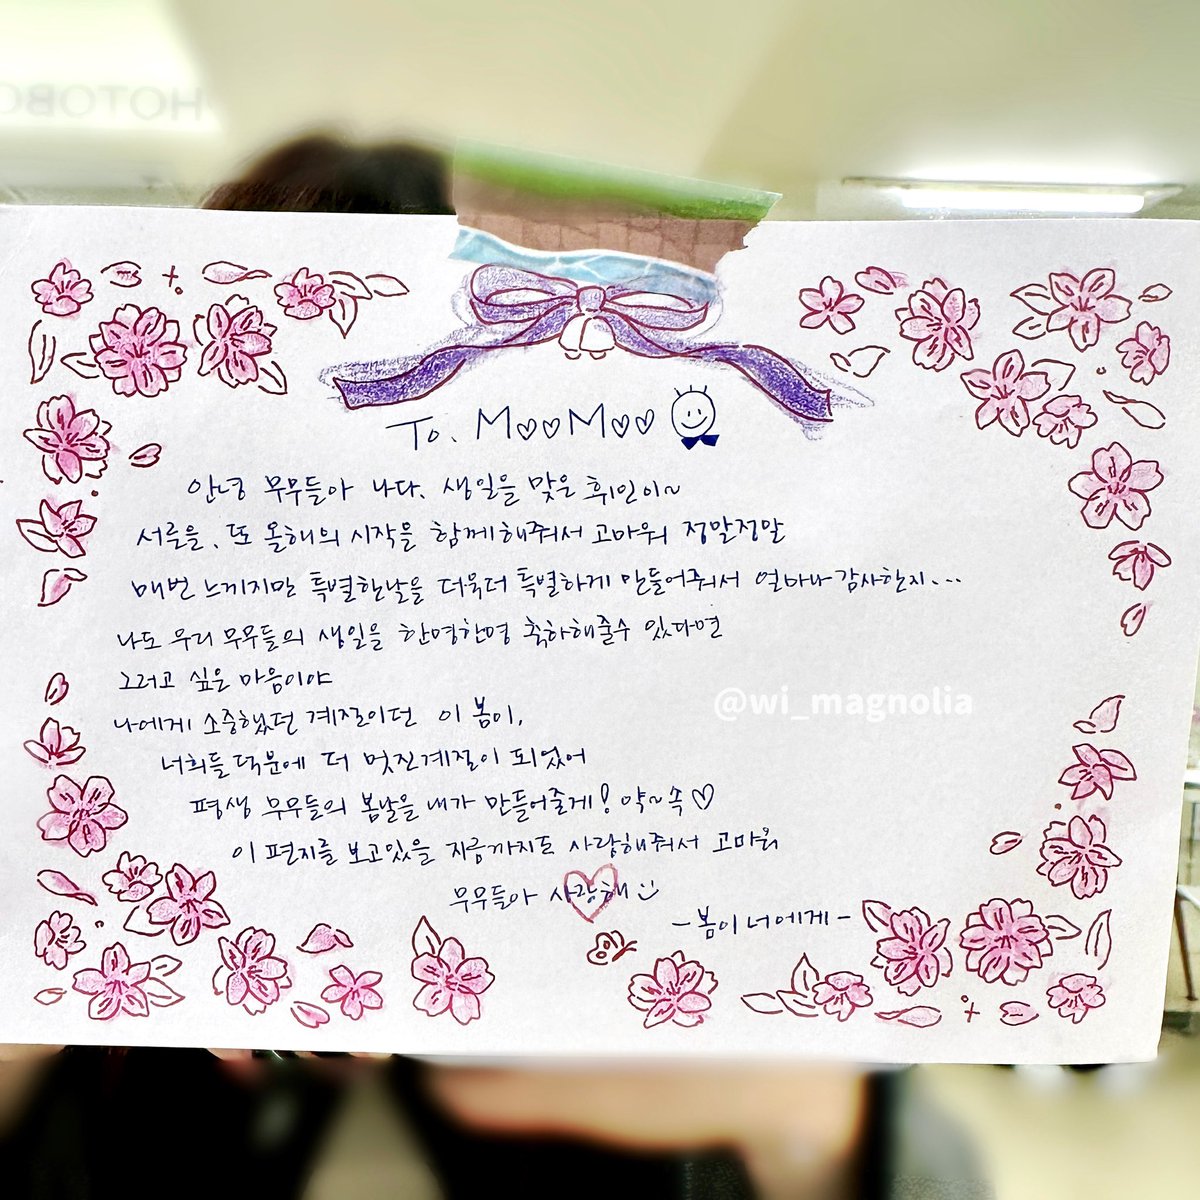 HOTOBO
To. M♡♡M♡♡
안녕 무무들아 나다. 생일을 맞은 휘인이~
서른을, 또 올해의 시작을 함께해줘서 고마워 정말정말
매번 느끼지만 특별한날을 더욱더 특별하게 만들어줘서 얼마나 감사한지...
나도 우리 무무들의 생일을 한명한명 축하해줄수 있다면
그러고 싶은 마음이야
나에게 소중했던 계절이던 이 봄이,
너희들 덕분에 더 멋진계절이 되었어
평생 무무들의 봄날을 내가 만들어줄게! 약~속♡
이 편지를 보고있을 지금까지도 사랑해줘서 고마워
무무들아 사랑해
-봄이 너에게-
@wi_magnolia